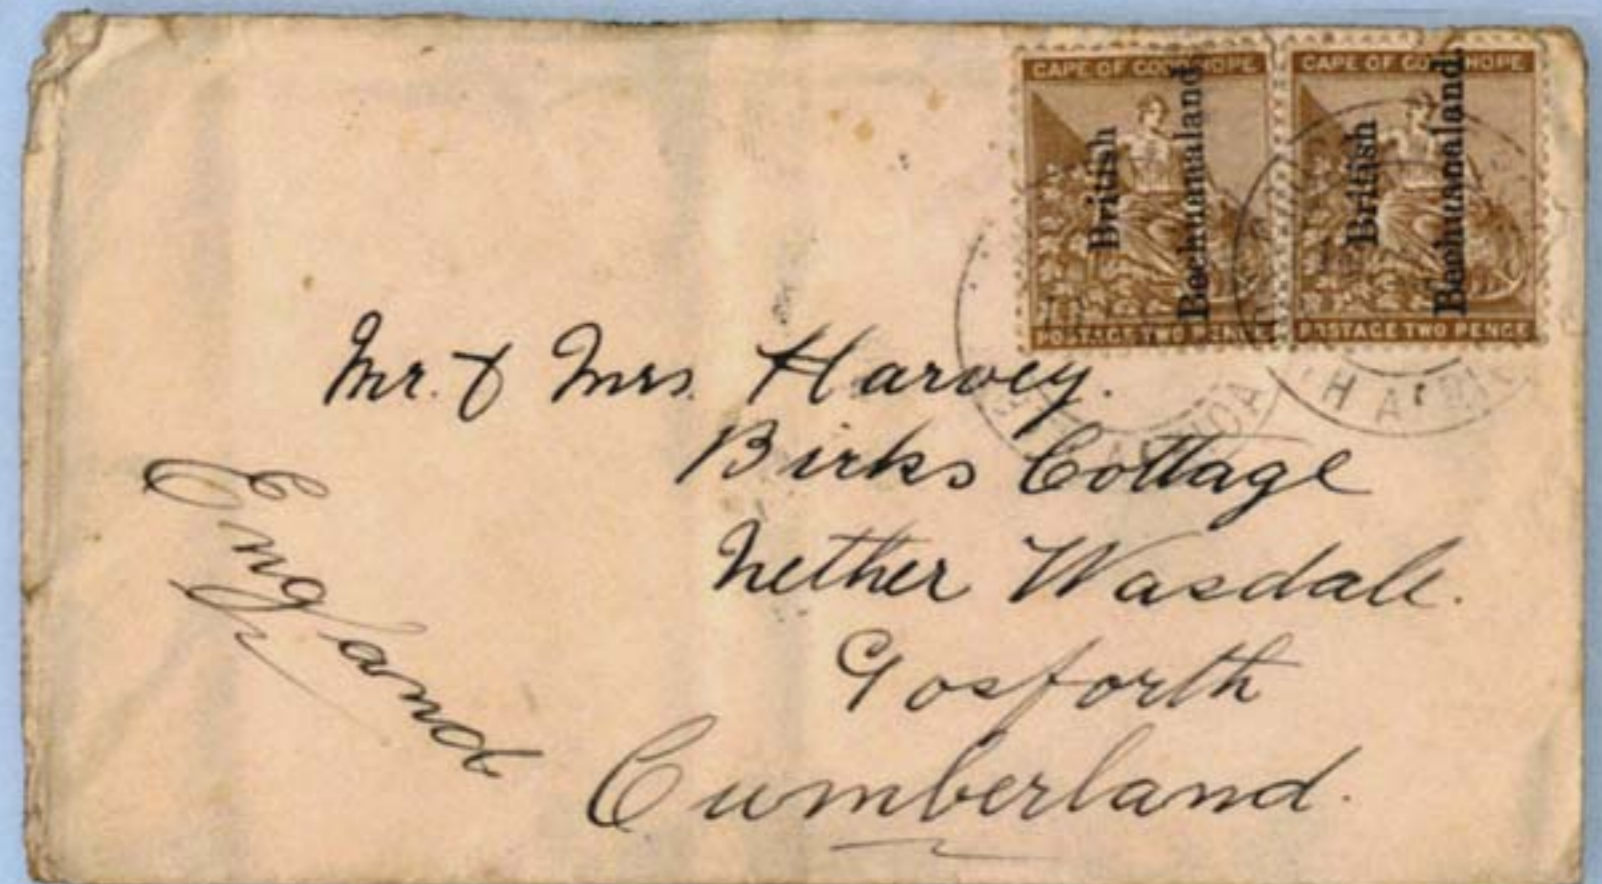 CAPE OF GOOD HOPE
British
Bechuanaland.
POSTAGE TWO PENCE
CAPE OF GOOD HOPE
British
Bechuanaland.
POSTAGE TWO PENCE
Mr. & Mrs. Harvey.
Birks Cottage
Nether Wasdale.
Gosforth
Cumberland.
England